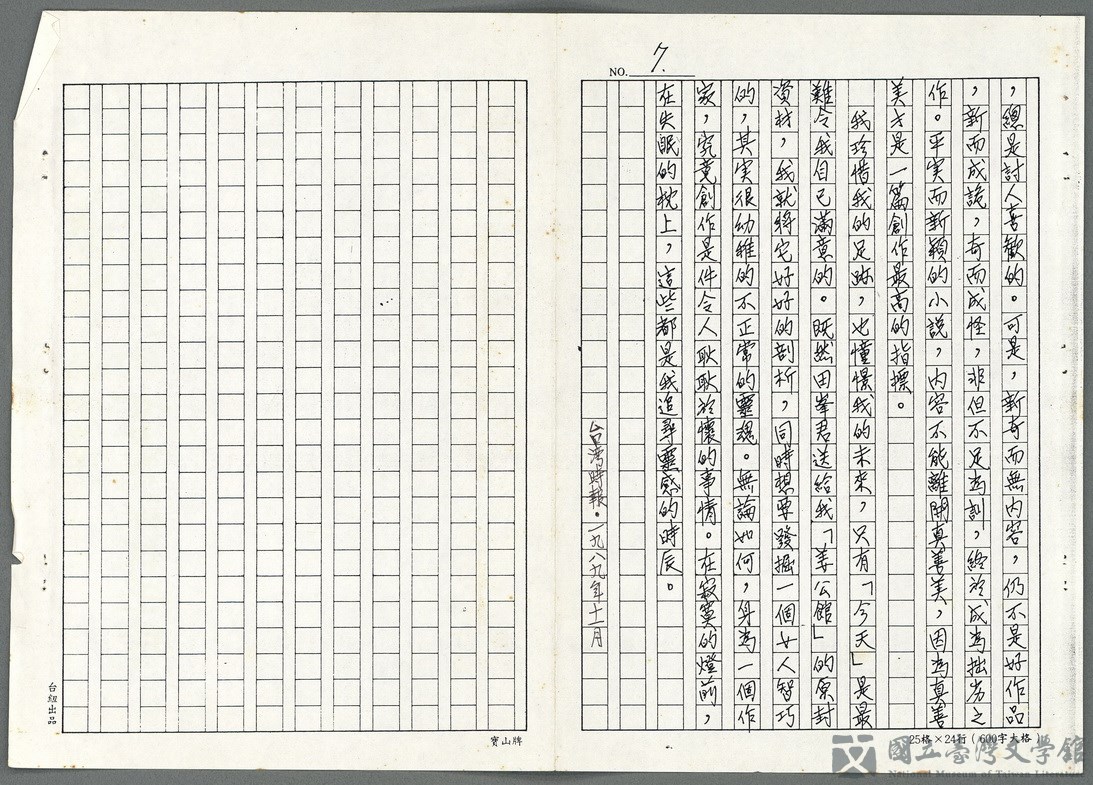 NO. 7.
，總是討人喜歡的。可是，新奇而無內容，仍不是好作品
，新而成詭，奇而成怪，非但不足為訓，終於成為拙劣之
作。平实而新穎的小說，內容不能離開真善美，因為真善
美才是一篇創作最高的指標。
我珍惜我的足跡，也憧憬我的未來，只有「今天」是最
難令我自己滿意的。既然田峯君送給我「姜公館」的原封
資材，我就將它好好的剖析，同時想要發掘一個女人智巧
的，其实很幼稚的不正常的靈魂。無論如何，身為一個作
家，究竟創作是件令人耿耿於懷的事情。在寂寞的燈前，
在失眠的枕上，這些都是我追尋靈感的時辰。
台灣時報·一九八九年十一月
25格×24行（600字大格）
寶山牌
台組出品
國立臺灣文學館
National Museum of Taiwan Literature